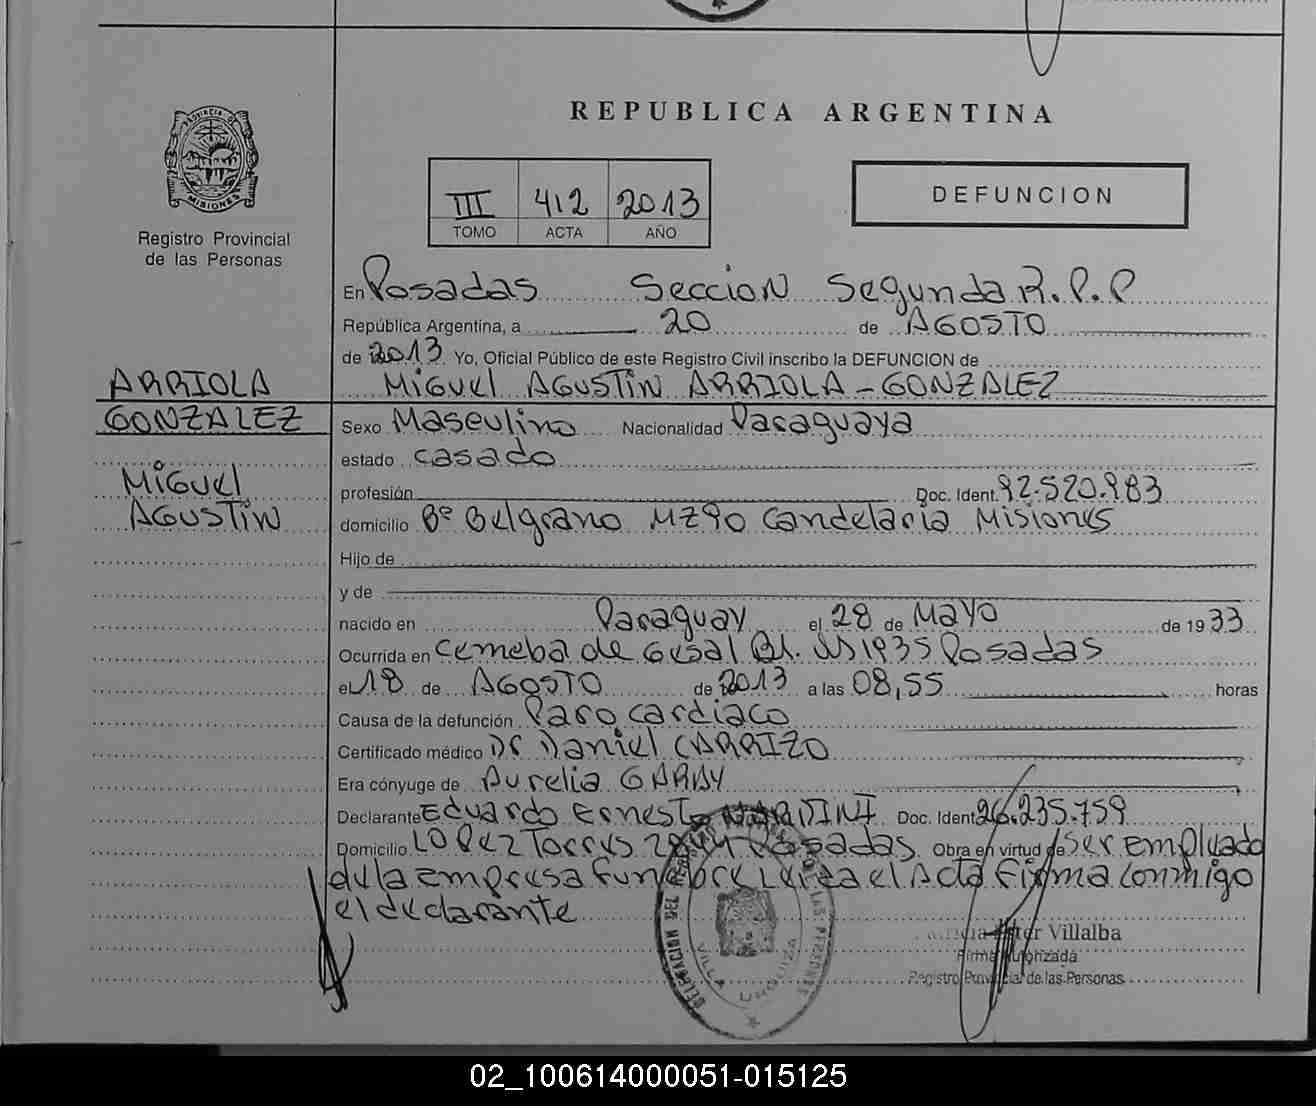 REPUBLICA ARGENTINA
PROVINCIA D MISIONES
Registro Provincial
de las Personas
III 412 2013
TOMO ACTA AÑO
DEFUNCION
En Posadas Seccion Segunda R.P.P
República Argentina, a 20 de AGOSTO
de 2013 Yo, Oficial Público de este Registro Civil inscribo la DEFUNCION de
MIGUEL AGUSTIN ARRIOLA - GONZALEZ
ARRIOLA
GONZALEZ
MIGUEL
AGUSTIN
Sexo Masculino Nacionalidad Paraguaya
estado casado
profesión Doc. Ident. 92.520.983
domicilio Bº Belgrano MZ90 Candelaria Misiones
Hijo de
y de
nacido en Paraguay el 28 de MAYO de 1933
Ocurrida en 1935 Posadas
el 18 de AGOSTO de 2013 a las 08,55 horas
Causa de la defunción Paro cardiaco
Certificado médico Dr Daniel CARRIZO
Era cónyuge de Aurelia GARAY
Declarante Eduardo Ernesto MARTINI Doc. Ident 26.235.759
Domicilio Lopez Torres Posadas Obra en virtud de ser empleado
de la empresa funebre el Acta firma conmigo
el declarante
DELEGACION DEL REGISTRO PROVINCIAL DE LAS PERSONAS
VILLA URQUIZA
Villalba
Firma Autorizada
Registro Provincial de las Personas
02_100614000051-015125